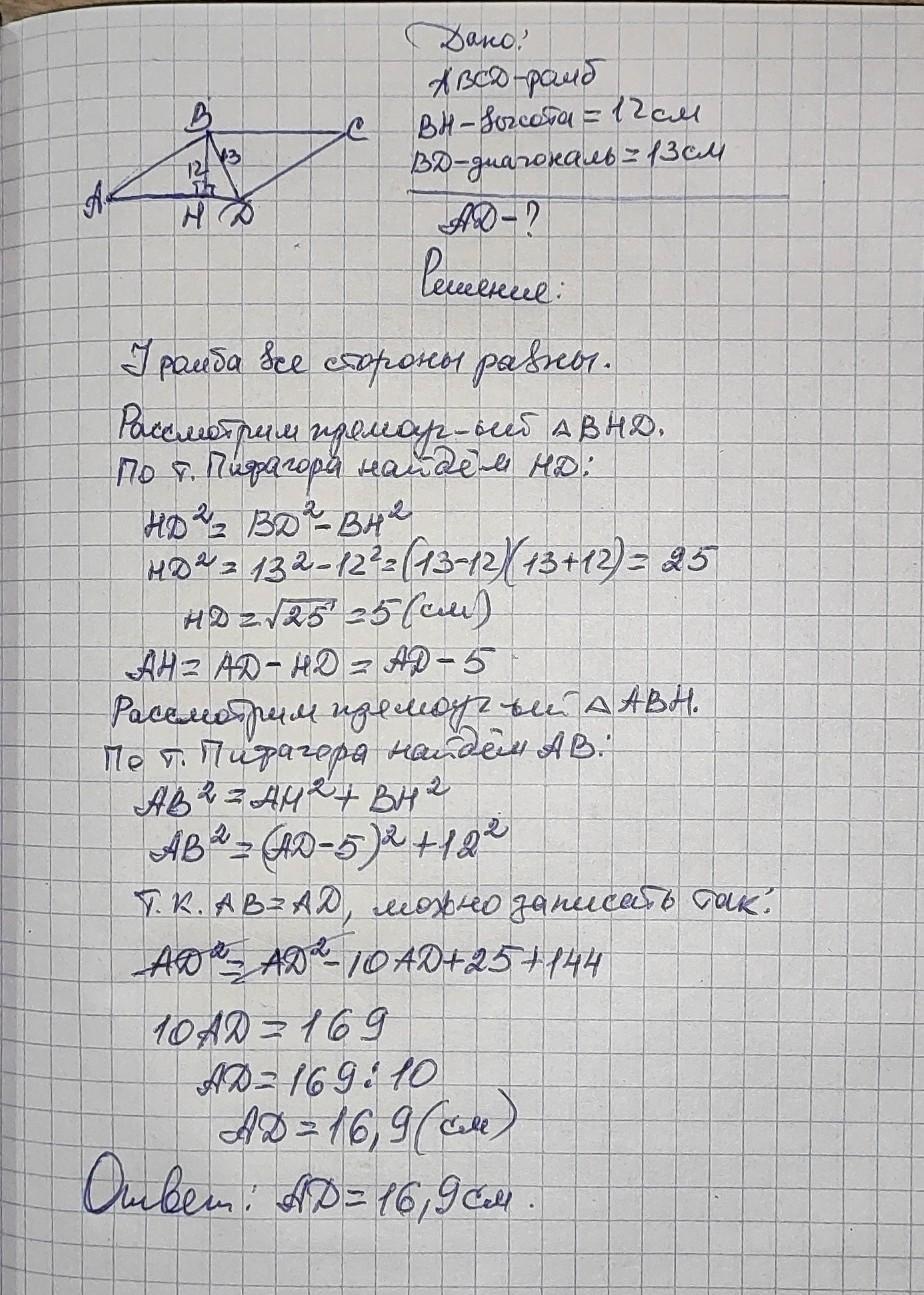 Дано:
ABCD-ромб
BH-высота = 12см
BD-диагональ = 13см
AD-?
Решение:
B
C
12
13
A
H
D
У ромба все стороны равны.
Рассмотрим прямоуг-ый △BHD.
По т. Пифагора найдём HD:
HD² = BD² - BH²
HD² = 13² - 12² = (13-12)(13+12) = 25
HD = √25 = 5 (см)
AH = AD - HD = AD - 5
Рассмотрим прямоуг-ый △ABH.
По т. Пифагора найдём AB:
AB² = AH² + BH²
AB² = (AD-5)² + 12²
Т.К. AB = AD, можно записать так:
AD² = AD² - 10AD + 25 + 144
10AD = 169
AD = 169 : 10
AD = 16,9 (см)
Ответ: AD = 16,9см.